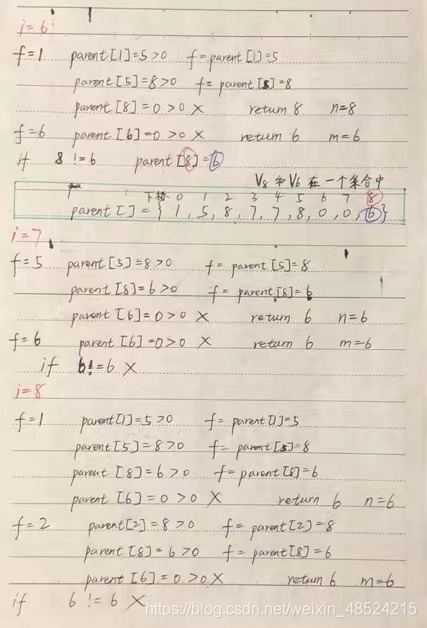 i=6:
f=1 parent[1]=5>0 f=parent[1]=5
parent[5]=8>0 f=parent[5]=8
parent[8]=0>0 X return 8 n=8
f=6 parent[6]=0>0 X return 6 m=6
if 8 != 6 parent[8]=6
V8 和 V6 在一个集合中
下标 0 1 2 3 4 5 6 7 8
parent[]={1, 5, 8, 7, 7, 8, 0, 0, 6}
i=7
f=5 parent[5]=8>0 f=parent[5]=8
parent[8]=6>0 f=parent[8]=6
parent[6]=0>0 X return 6 n=6
f=6 parent[6]=0>0 X return 6 m=6
if 6!=6 X
i=8
f=1 parent[1]=5>0 f=parent[1]=5
parent[5]=8>0 f=parent[5]=8
parent[8]=6>0 f=parent[8]=6
parent[6]=0>0 X return 6 n=6
f=2 parent[2]=8>0 f=parent[2]=8
parent[8]=6>0 f=parent[8]=6
parent[6]=0>0 X return 6 m=6
if 6 != 6 X
https://blog.csdn.net/weixin_48524215